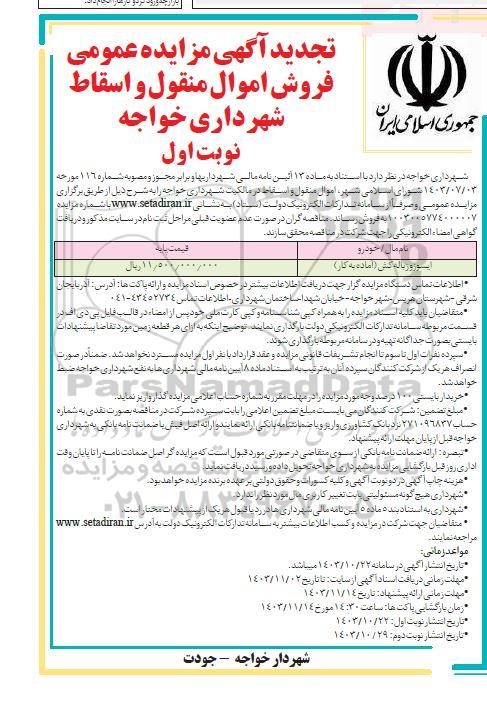 تجدید آگهی مزایده عمومی
فروش اموال منقول و اسقاط
شهرداری خواجه
نوبت اول
جمهوری اسلامی ایران
شهرداری خواجه در نظر دارد با استناد به ماده ۱۳ آئین نامه مالی شهرداریها و برابر مجوز و مصوبه شماره ۱۱۶ مورخه
۱۴۰۳/۰۷/۰۳ شورای اسلامی شهر، اموال منقول و اسقاط در مالکیت شهرداری خواجه را به شرح ذیل از طریق برگزاری
مزایده عمومی و صرفاً از سامانه تدارکات الکترونیک دولت (ستاد) به نشانی www.setadiran.ir با شماره مزایده
۱۰۰۳۰۰۵۷۷۴۰۰۰۰۰۷ به فروش رساند. مناقصه گران در صورت عدم عضویت قبلی مراحل ثبت نام در سایت مذکور و دریافت
گواهی امضاء الکترونیکی را جهت شرکت در مناقصه محقق سازند.
نام مال / خودرو قیمت پایه
ایسوزو زباله کش (آماده به کار) ۱۱/۵۰۰/۰۰۰/۰۰۰ ریال
• اطلاعات تماس دستگاه مزایده گزار جهت دریافت اطلاعات بیشتر در خصوص اسناد مزایده و ارائه پاکت ها: آدرس: آذربایجان
شرقی - شهرستان هریس - شهر خواجه - خیابان شهدا ساختمان شهرداری - اطلاعات تماس ۴۳۴۵۲۷۳۴-۰۴۱
• متقاضیان باید کلیه اسناد مزایده را به همراه کپی شناسنامه و کپی کارت ملی خود پس از امضاء در قالب فایل پی دی اف در
قسمت مربوطه سامانه تدارکات الکترونیکی دولت بارگذاری نمایند. توضیح اینکه به ازای هر قطعه زمین مورد تقاضا پیشنهادات
بایستی بصورت جداگانه تهیه و در سامانه مربوطه بارگذاری شوند.
• سپرده نفرات اول تا سوم تا انجام تشریفات قانونی مزایده و عقد قرارداد با نفر اول مزایده مسترد نخواهد شد. ضمناً در صورت
انصراف هر یک از شرکت کنندگان سپرده آنان به ترتیب به استناد ماده ۸ آیین نامه مالی شهرداری ها به نفع شهرداری خواجه ضبط
خواهد شد.
• خریدار بایستی ۱۰۰ درصد وجه مورد مزایده را در مهلت مقرر به شماره حساب اعلامی مزایده گذار واریز نماید.
• مبلغ تضمین: شرکت کنندگان می بایست مبلغ تضمین اعلامی را بابت سپرده شرکت در مناقصه بصورت نقدی به شماره
حساب ۲۷۱۰۹۶۸۳۷ نزد بانک کشاورزی واریز و یا ضمانتنامه بانکی ارائه نمایند و ارائه اصل فیش یا ضمانت نامه بانکی به شهرداری
خواجه قبل از پایان مهلت ارائه پیشنهاد.
• تبصره: ارائه ضمانت نامه بانکی از سوی متقاضی در صورتی مورد قبول است که مزایده گر اصل ضمانت نامه را تا پایان وقت
اداری روز قبل بازگشایی مزایده به شهرداری خواجه تحویل داده و رسید دریافت نماید.
• هزینه چاپ آگهی در دو نوبت آگهی و کلیه کسورات و حقوق دولتی بر عهده برنده مزایده خواهد بود.
• شهرداری هیچ گونه مسئولیتی بابت تغییر کاربری مال مورد نظر را ندارد.
• شهرداری به استناد بند ۵ ماده ۵ آیین نامه مالی شهرداری ها در رد یا قبول هر یک از پیشنهادات مختار است.
• متقاضیان جهت شرکت در مزایده و کسب اطلاعات بیشتر به سامانه تدارکات الکترونیک دولت به آدرس www.setadiran.ir
مراجعه نمایند.
مواعد زمانی:
• تاریخ انتشار آگهی در سامانه ۱۴۰۳/۱۰/۲۲ میباشد.
• مهلت زمانی دریافت اسناد آگهی از سایت: تا تاریخ ۱۴۰۳/۱۱/۰۲
• مهلت زمانی ارائه پیشنهاد: تاریخ ۱۴۰۳/۱۱/۱۴
• زمان بازگشایی پاکت ها: ساعت ۱۴:۳۰ مورخ ۱۴۰۳/۱۱/۱۴
• تاریخ انتشار نوبت اول: ۱۴۰۳/۱۰/۲۲
• تاریخ انتشار نوبت دوم: ۱۴۰۳/۱۰/۲۹
شهردار خواجه - جودت